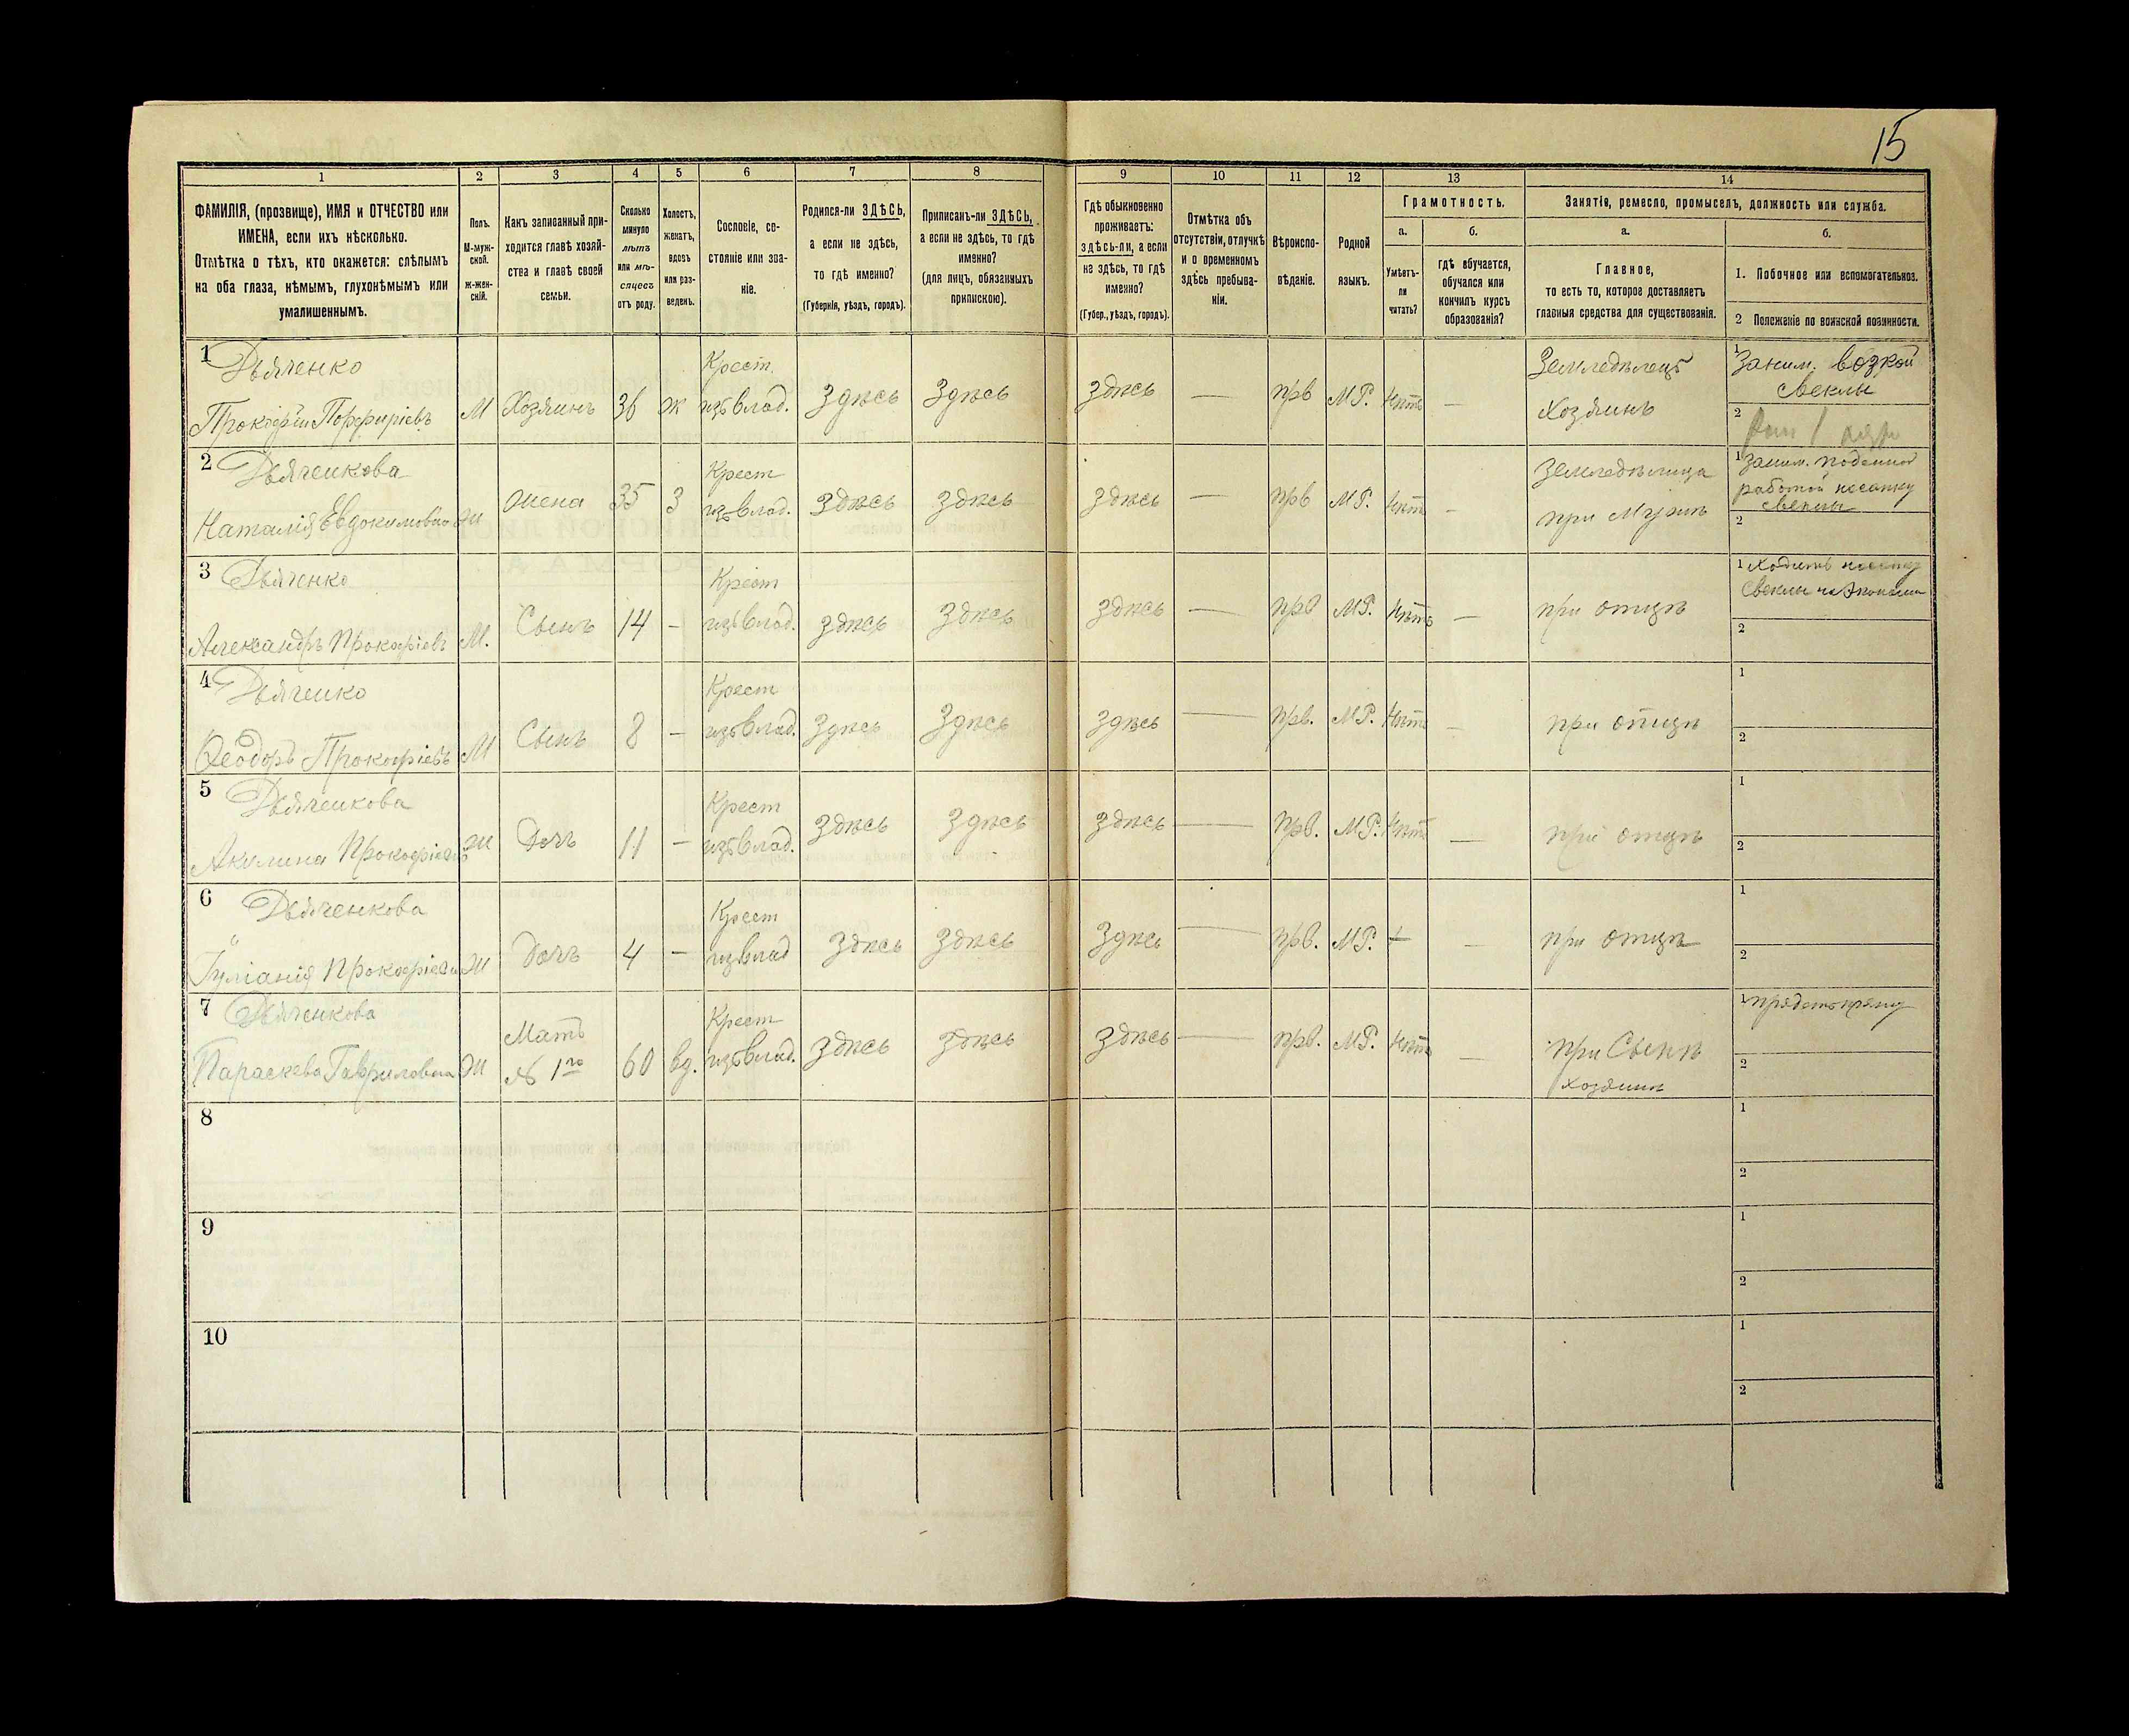 15
1 2 3 4 5 6 7 8 9 10 11 12 13 14
ФАМИЛІЯ, (прозвище), ИМЯ и ОТЧЕСТВО или
ИМЕНА, если ихъ нѣсколько.
Отмѣтка о тѣхъ, кто окажется: слѣпымъ
на оба глаза, нѣмымъ, глухонѣмымъ или
умалишеннымъ.
Полъ.
М-муж-
ской.
Ж-жен-
скій.
Какъ записанный при-
ходится главѣ хозяй-
ства и главѣ своей
семьи.
Сколько
минуло
лѣтъ
или мѣ-
сяцевъ
отъ роду.
Холостъ,
женатъ,
вдовъ
или раз-
веденъ.
Сословіе, со-
стояніе или зва-
ніе.
Родился-ли ЗДѢСЬ,
а если не здѣсь,
то гдѣ именно?
(Губернія, уѣздъ, городъ).
Приписанъ-ли ЗДѢСЬ,
а если не здѣсь, то гдѣ
именно?
(для лицъ, обязанныхъ
припискою).
Гдѣ обыкновенно
проживаетъ:
здѣсь-ли, а если
не здѣсь, то гдѣ
именно?
(Губер., уѣздъ, городъ).
Отмѣтка объ
отсутствіи, отлучкѣ
и о временномъ
здѣсь пребыва-
ніи.
Вѣроиспо-
вѣданіе.
Родной
языкъ.
Грамотность.
а.
Умѣетъ-
ли
читать?
б.
гдѣ обучается,
обучался или
кончилъ курсъ
образованія?
Занятіе, ремесло, промыселъ, должность или служба.
а.
Главное,
то есть то, которое доставляетъ
главныя средства для существованія.
б.
1. Побочное или вспомогательное.
2 Положеніе по воинской повинности.
1 Дьяченко
Прокофій Порфиріевъ
М
Хозяинъ
36
ж
Крест.
изъ влад.
Здѣсь
Здѣсь
здѣсь
—
прв
МР.
Нѣтъ
—
Земледѣлецъ
Хозяинъ
1 Заним. возкой
свеклы
2
2 Дьяченкова
Наталія Евдокимовна
ж
жена
35
З
Крест
изъ влад.
здѣсь
здѣсь
здѣсь
—
прв
МР.
Нѣтъ
—
Земледѣлица
при Мужѣ
1 Заним. поденной
работой
свеклы
2
3 Дьяченко
Александръ Прокофіевъ
М.
Сынъ
14
—
Крест
изъ влад.
здѣсь
здѣсь
здѣсь
—
прв
МР.
Нѣтъ
—
при отцѣ
1 Ходитъ
свеклы
2
4 Дьяченко
Ѳеодоръ Прокофіевъ
М
Сынъ
8
—
Крест
изъ влад.
Здѣсь
Здѣсь
здѣсь
—
прв.
МР.
Нѣтъ
—
при отцѣ
1
2
5 Дьяченкова
Акилина Прокофіевна
ж
Дочь
11
—
Крест
изъ влад.
здѣсь
здѣсь
здѣсь
—
прв.
МР.
Нѣтъ
—
при отцѣ
1
2
6 Дьяченкова
Іуліанія Прокофіевна
ж
Дочь
4
—
Крест
изъ влад
здѣсь
здѣсь
здѣсь
—
прв.
МР.
+
—
при отцѣ
1
2
7 Дьяченкова
Параскева Гавриловна
ж
Мать
№ 1го
60
вд.
Крест
изъ влад.
здѣсь
здѣсь
здѣсь
—
прв.
МР.
Нѣтъ
—
при Сынѣ
Хозяинѣ
1 прядетъ пряжу
2
8
1
2
9
1
2
10
1
2